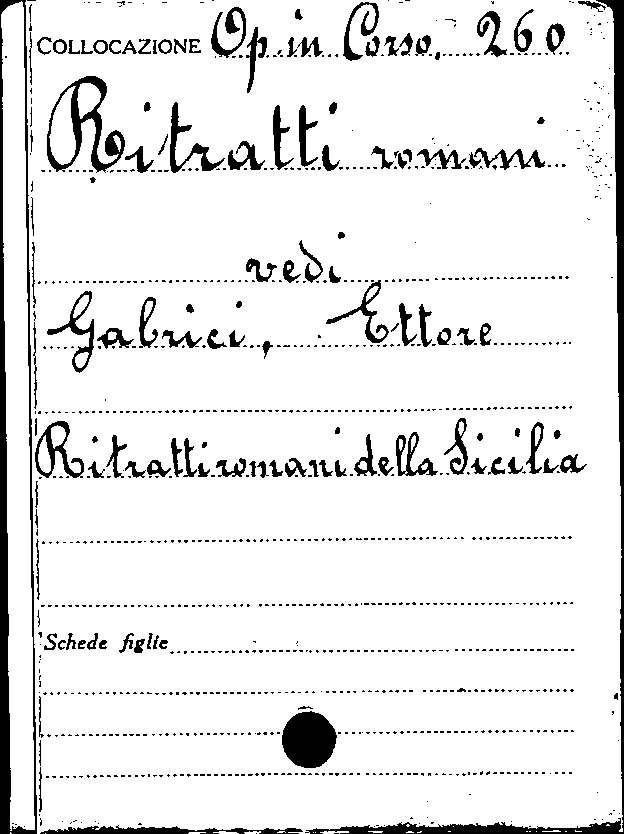 COLLOCAZIONE Op. in Corso. 260
Ritratti romani
vedi
Gabrici, Ettore
Ritratti romani della Sicilia
Schede figlie